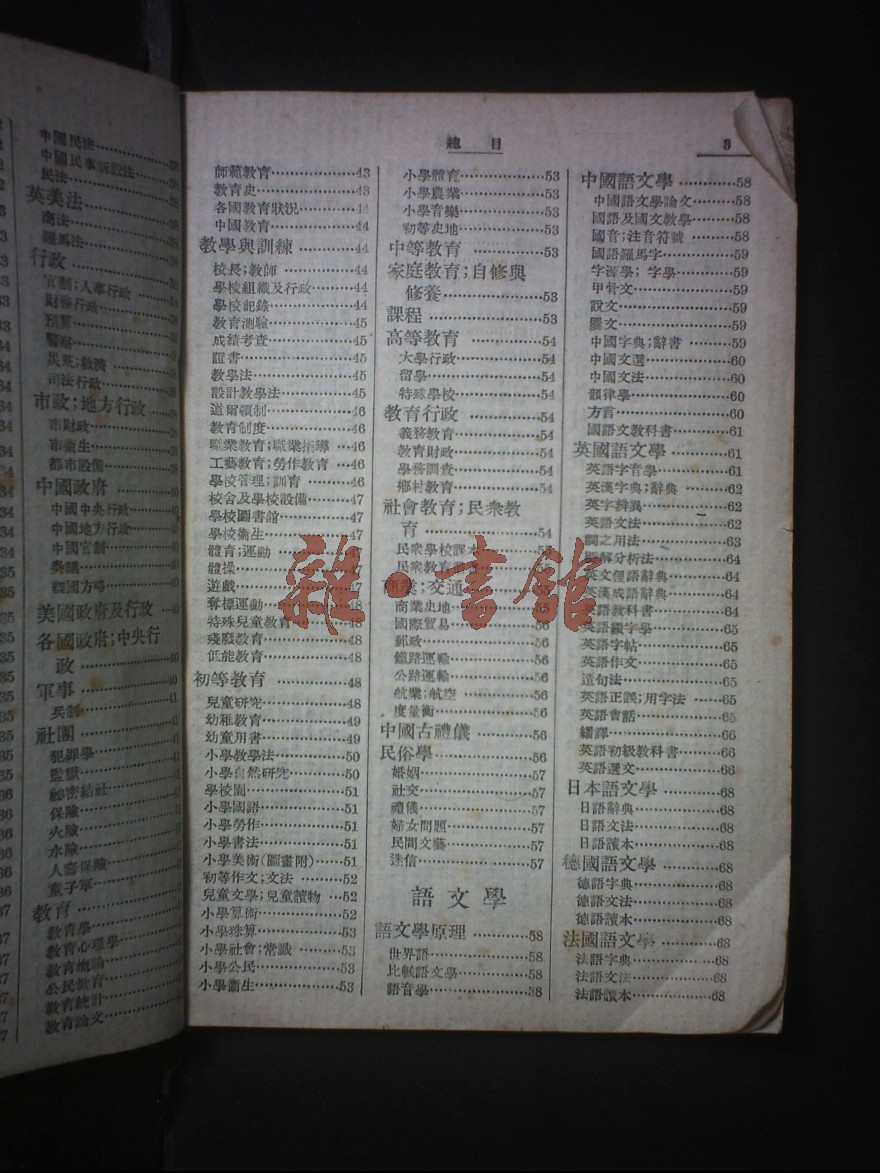 中國民法…………38
中國民事訴訟法……38
民法…………38
英美法…………38
商法…………38
羅馬法…………38
行政…………38
官制;人事行政……38
財務行政…………38
預算…………38
警察…………38
災荒;救濟…………38
司法行政…………38
市政;地方行政……38
市財政…………38
市衞生…………38
都市設備…………38
中國政府…………40
中國中央行政……40
中國地方行政……40
中國官制…………40
奏議…………40
經國方略…………40
美國政府及行政……40
各國政府;中央行
政…………40
軍事
兵制
社團
犯罪學
監獄
祕密結社
保險
火險
水險
人壽保險
童子軍
教育
教育學
教育心理學
教育概論
公民教育
教育統計
教育論文
總目
3
師範教育…………43
教育史…………43
各國教育狀況……44
中國教育…………44
教學與訓練…………44
校長;教師…………44
學校組織及行政……44
學校記錄…………44
教育測驗…………45
成績考查…………45
證書…………45
教學法…………45
設計教學法…………45
道爾頓制…………46
教育制度…………46
職業教育;職業指導…46
工藝教育;勞作教育…46
學校管理;訓育……46
校舍及學校設備……47
學校圖書館…………47
學校衞生…………47
體育;運動…………47
體操…………47
遊戲…………47
奪標運動…………48
特殊兒童教育……48
殘廢教育…………48
低能教育…………48
初等教育…………48
兒童研究…………48
幼稚教育…………49
幼童用書…………49
小學教學法…………50
小學自然研究……50
學校園…………51
小學國語…………51
小學勞作…………51
小學書法…………51
小學美術(圖畫附)…51
初等作文;文法……52
兒童文學;兒童讀物…52
小學算術…………52
小學珠算…………53
小學社會;常識……53
小學公民…………53
小學衞生…………53
小學體育…………53
小學農業…………53
小學音樂…………53
初等史地…………53
中等教育…………53
家庭教育;自修與
修養…………53
課程…………53
高等教育…………54
大學行政…………54
留學…………54
特殊學校…………54
教育行政…………54
義務教育…………54
教育財政…………54
學務調查…………54
鄉村教育…………54
社會教育;民衆教
育…………54
民衆學校課本
民衆教育
商業;交通
商業史地
國際貿易…………56
郵政…………56
鐵路運輸…………56
公路運輸…………56
航業;航空…………56
度量衡…………56
中國古禮儀…………56
民俗學…………56
婚姻…………57
社交…………57
禮儀…………57
婦女問題…………57
民間文藝…………57
迷信…………57
語文學
語文學原理…………58
世界語…………58
比較語文學…………58
語音學…………58
中國語文學…………58
中國語文學論文……58
國語及國文教學……58
國音;注音符號……58
國語羅馬字…………59
字源學;字學…………59
甲骨文…………59
說文…………59
彙文…………59
中國字典;辭書……59
中國文選…………60
中國文法…………60
韻律學…………60
方言…………60
國語文教科書……61
英國語文學…………61
英語字音學…………61
英漢字典;辭典……62
英字辨異…………62
英語文法…………62
詞之用法…………63
圖解分析法…………64
英文俚語辭典……64
英漢成語辭典……64
英語教科書…………64
英語綴字學…………65
英語字帖…………65
英語作文…………65
造句法…………65
英語正誤;用字法…65
英語會話…………65
繙譯…………66
英語初級教科書……66
英語選文…………66
日本語文學…………68
日語辭典…………68
日語文法…………68
日語讀本…………68
德國語文學…………68
德語字典…………68
德語文法…………68
德語讀本…………68
法國語文學…………68
法語字典…………68
法語文法…………68
法語讀本…………68
雜·書館